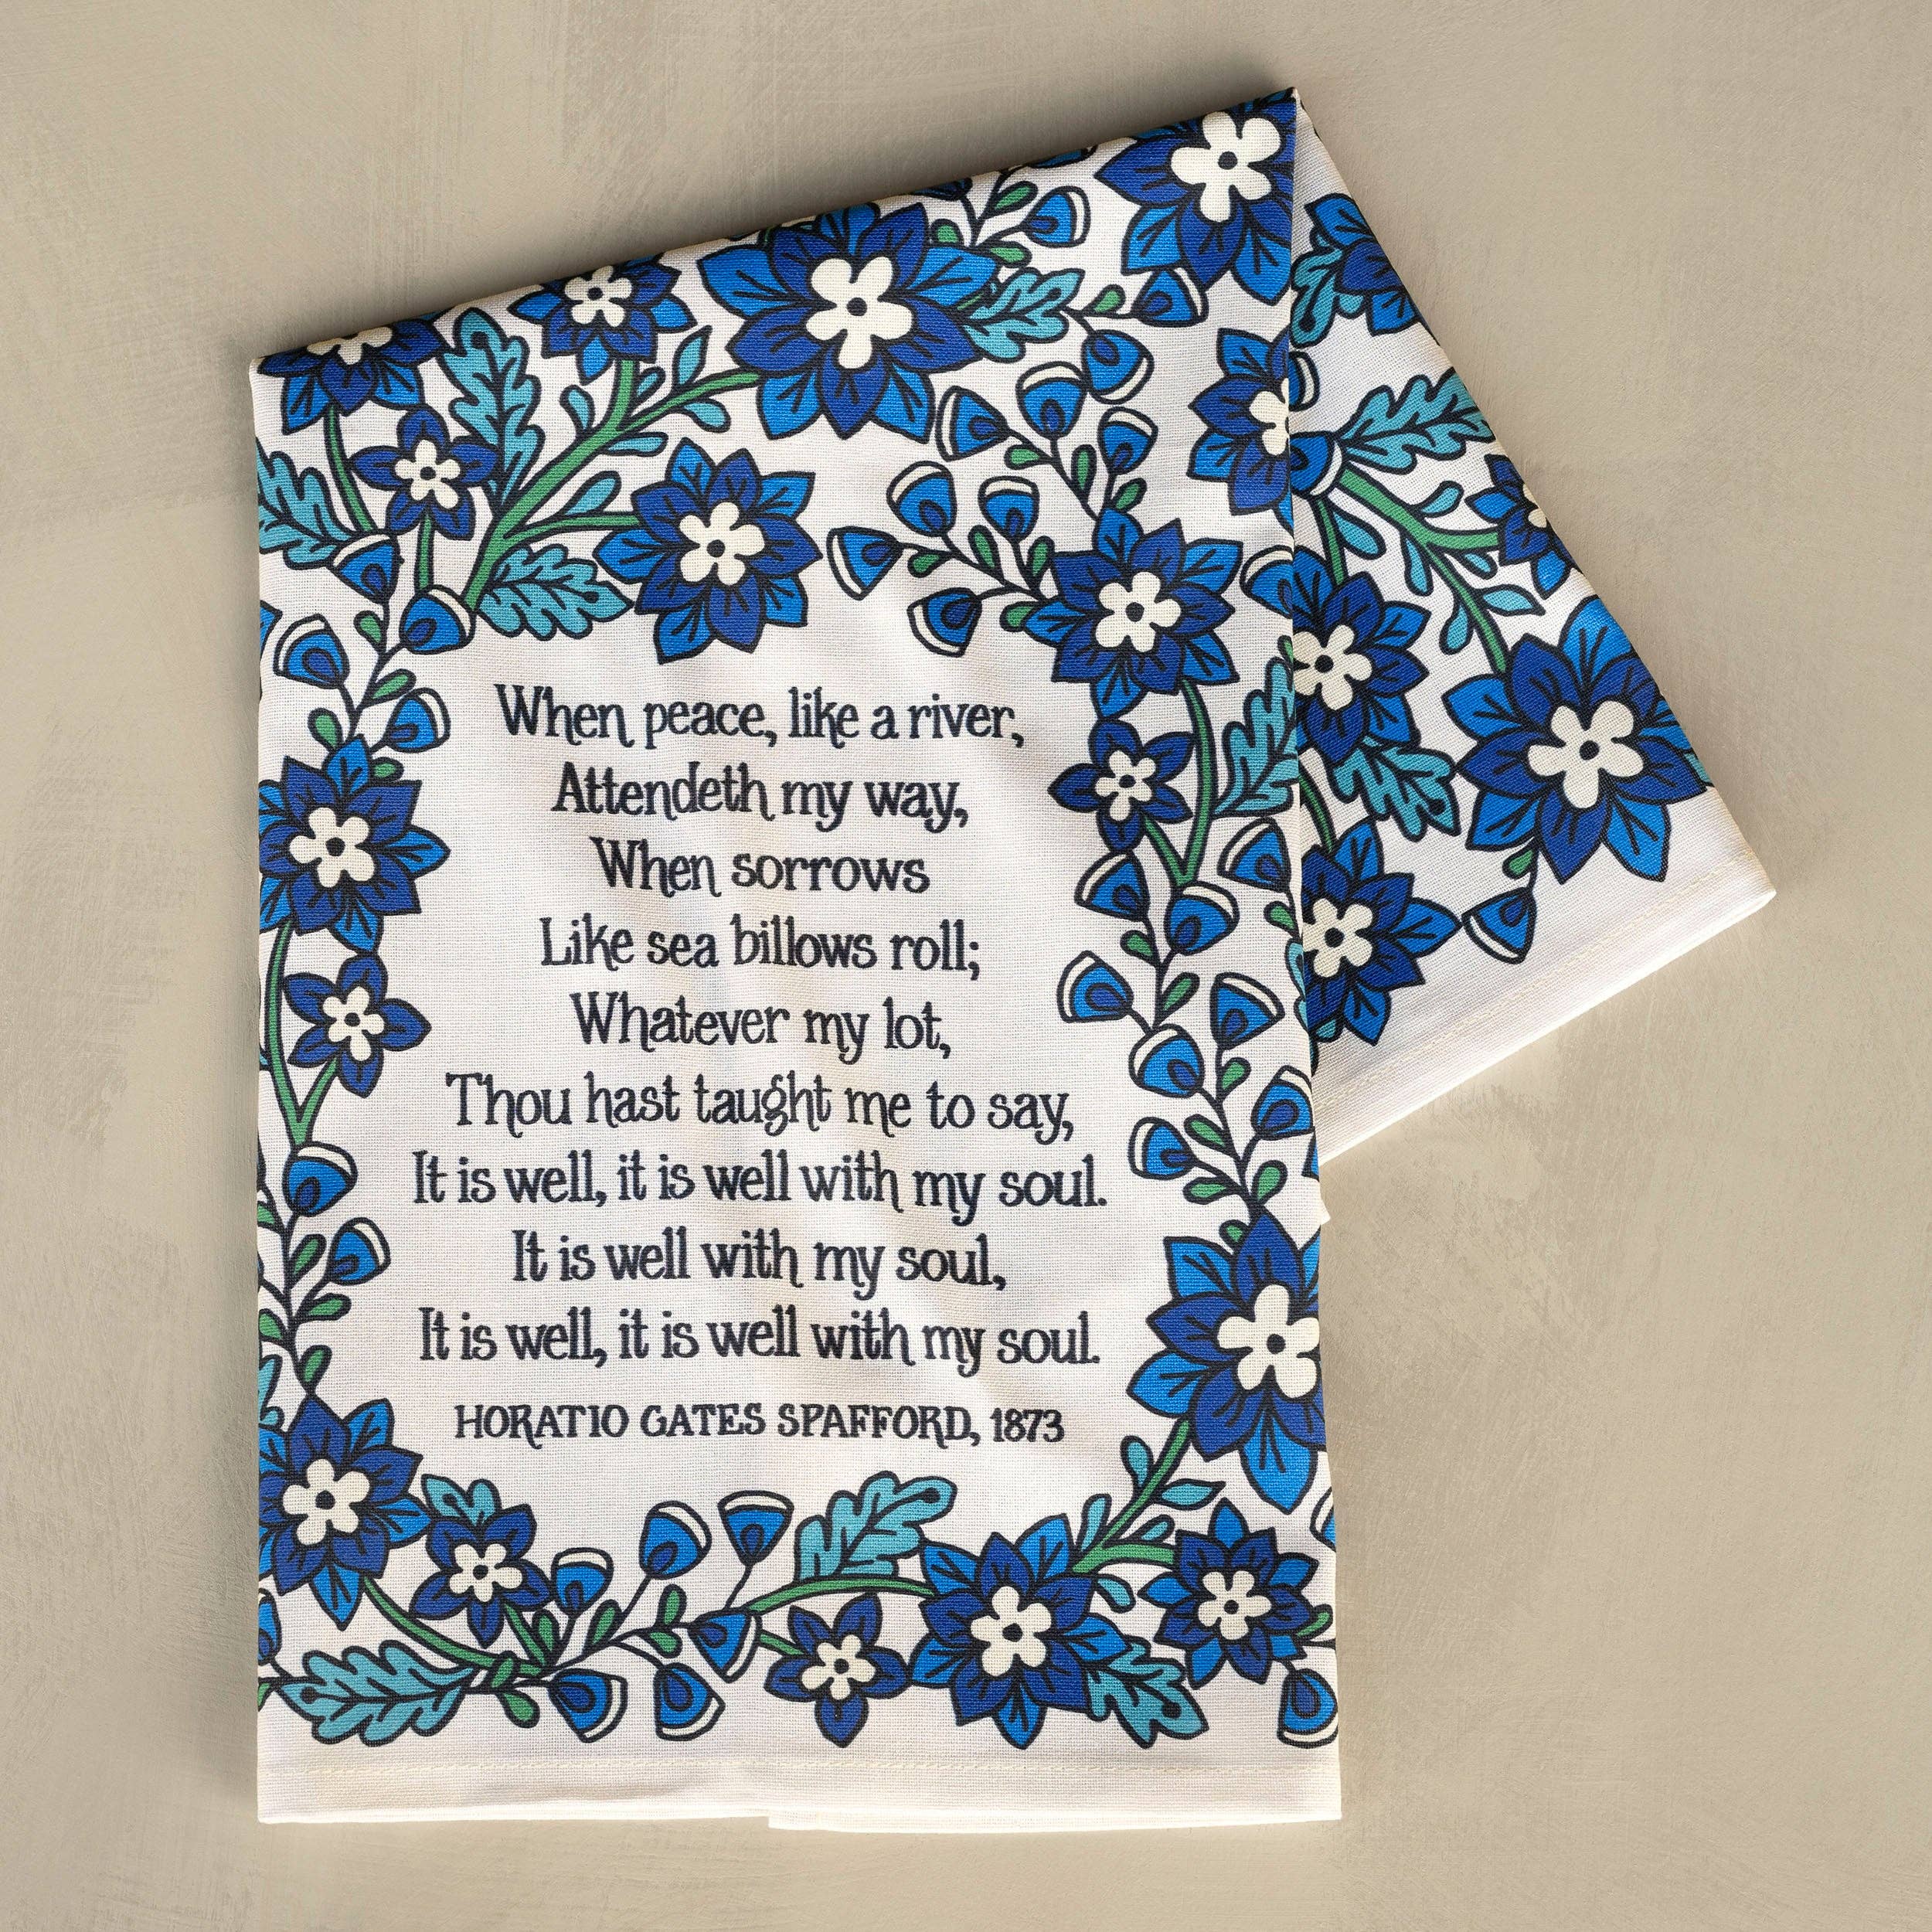 When peace, like a river,
Attendeth my way,
When sorrows
Like sea billows roll;
Whatever my lot,
Thou hast taught me to say,
It is well, it is well with my soul.
It is well with my soul,
It is well, it is well with my soul.
HORATIO GATES SPAFFORD, 1873